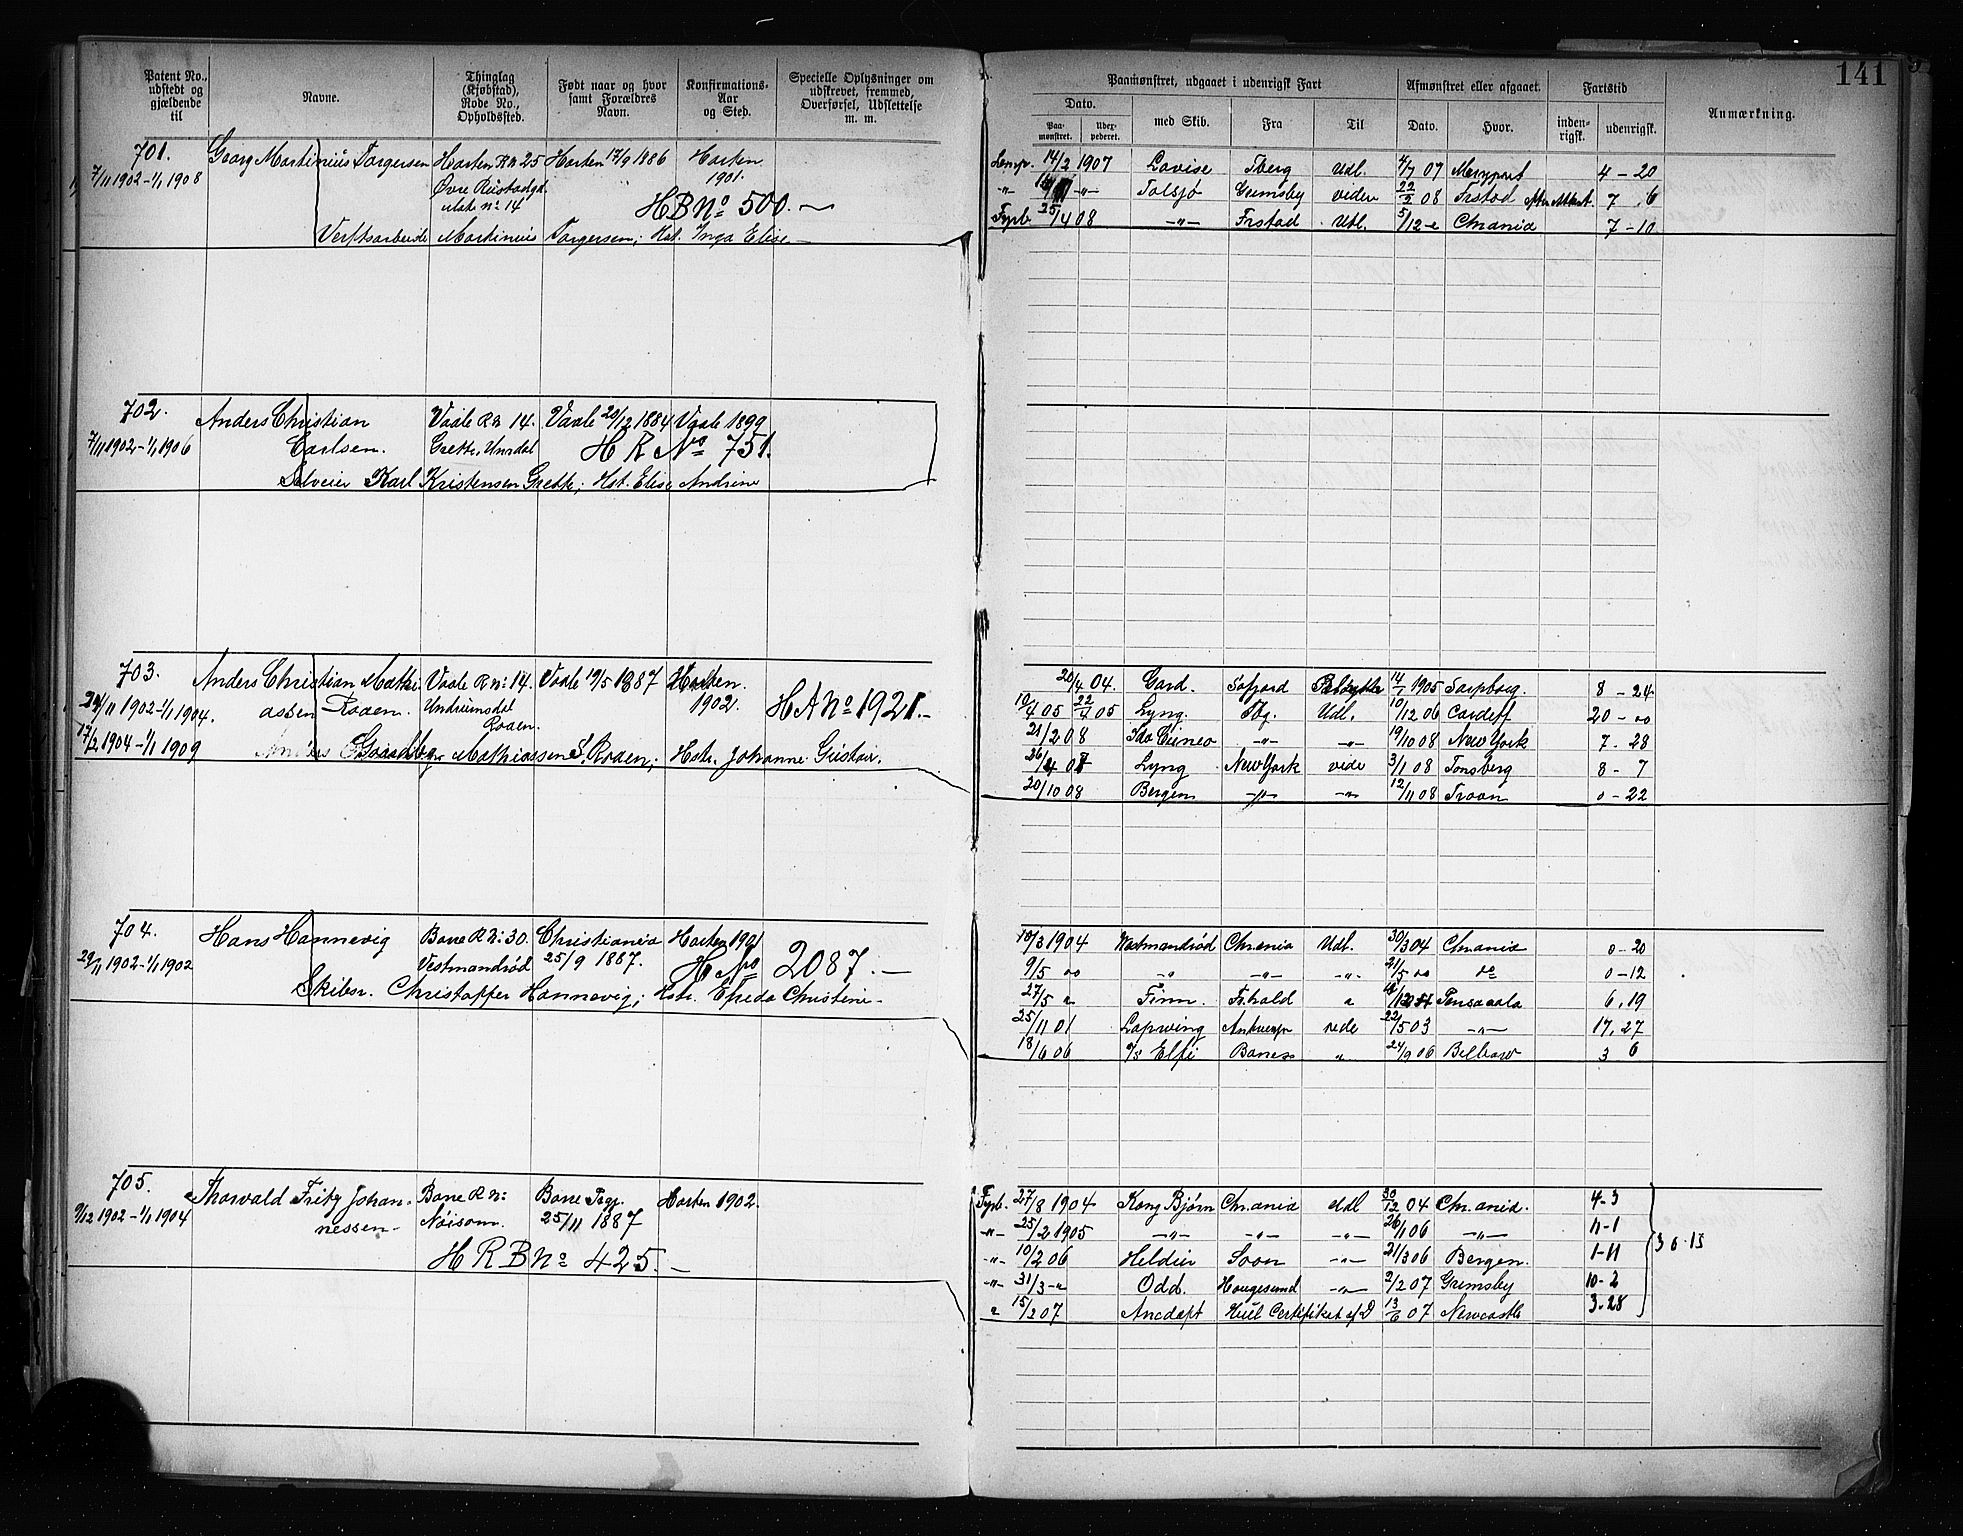 141
Patent No., udstedt og gjældende til
Navne.
Thinglag (Kjøbstad), Rode No., Opholdssted.
Født naar og hvor samt Forældres Navn.
Konfirmations-Aar og Sted.
Specielle Oplysninger om udskrevet, fremmed, Overførsel, Udslettelse m. m.
Paamønstret, udgaaet i udenrigsk Fart
Afmønstret eller afgaaet.
Fartstid
Anmærkning.
Dato.
Paamønstret.
Udexpederet.
med Skib.
Fra
Til
Dato.
Hvor.
indenrigsk.
udenrigsk.
701. Georg Martinius Torgersen Horten R № 25 Horten 17/9 1886 Horten
7/11 1902-1/1 1908 Øvre 1901.
№ 14 HB № 500.—
Verftsarbeide Martinius Torgersen; Hst. Inga Elise
14/2 1907 Lovise Tberg Udl. 4/7 07 Maryport 4 - 20
Tolsjø Grimsby videre 22/2 08 Frstad 7 6
Fyrb 25/4 08 -"- Frstad Udl. 5/12 Chrania 7 - 10
702. Anders Christian Vaale R № 14. Vaale 20/12 1884 Vaale 1899
7/11 1902-1/1 1906 Carlsen. H R № 751.
Selveier Karl Kristensen Grette; Hst. Elise Andrine
703. Anders Christian Mathi Vaale R № 14. Vaale 19/5 1887 Horten.
24/11 1902-1/1 1904. assen Roaen. Undrumsdal 1902. HA № 1921.—
Roaen.
17/2 1904-1/1 1909 Mathiassen S. Roaen; Hstr. Johanne
20/4 04. Gard. 14/1 1905 Sarpborg. 8 - 24
19/4 05 22/4 05 Lyng. Tbg. Udl. 10/12 06 Cardiff 20 - 00
21/2 08 Ida Cuneo -"- -"- 19/10 08 New York 7 - 28
Lyng New York vide 3/1 08 Tønsberg 8 - 7
20/10 08 Bergen -"- -"- 12/11 08 Troon 0 - 22
704. Hans Hannevig Borre R № 30. Christiania Horten 1901
29/11 1902-1/1 1902 Vestmandrød 25/9 1887. H № 2087.—
Skibsr. Christoffer Hannevig; Hstr. Christine
18/3 1904 Vestmandrød Chrania Udl. 30/3 04 Chrania 0 - 20
9/5 -"- -"- -"- 21/5 do 0 - 12
27/5 Finn. Fshald Pensacola 6, 19
25/11 01 Lapwing Antwerp 22/5 03 -"- 17, 27
18/6 06 S/S Elfi Boness " 24/9 06 3 6
705. Thorvald Fritz Johan- Borre R № Borre Prgj. Horten 1902.
9/12 1902-1/1 1904 nessen- 25/11 1887
H R B № 425.—
Fyrb. 27/8 1904 Kong Bjørn Chrania Udl 30/12 04 Chrania. 4 - 3
-"- 25/2 1905 -"- -"- -"- 26/1 06 -"- 11 - 1
-"- 10/2 06 Soon -"- 21/3 06 Bergen. 1 - 11
-"- 31/3 Odd. Haugesund -"- 2/2 07 Grimsby 10 - 2
15/2 07 Certifikat af D 13/6 07 Newcastle 3 - 28